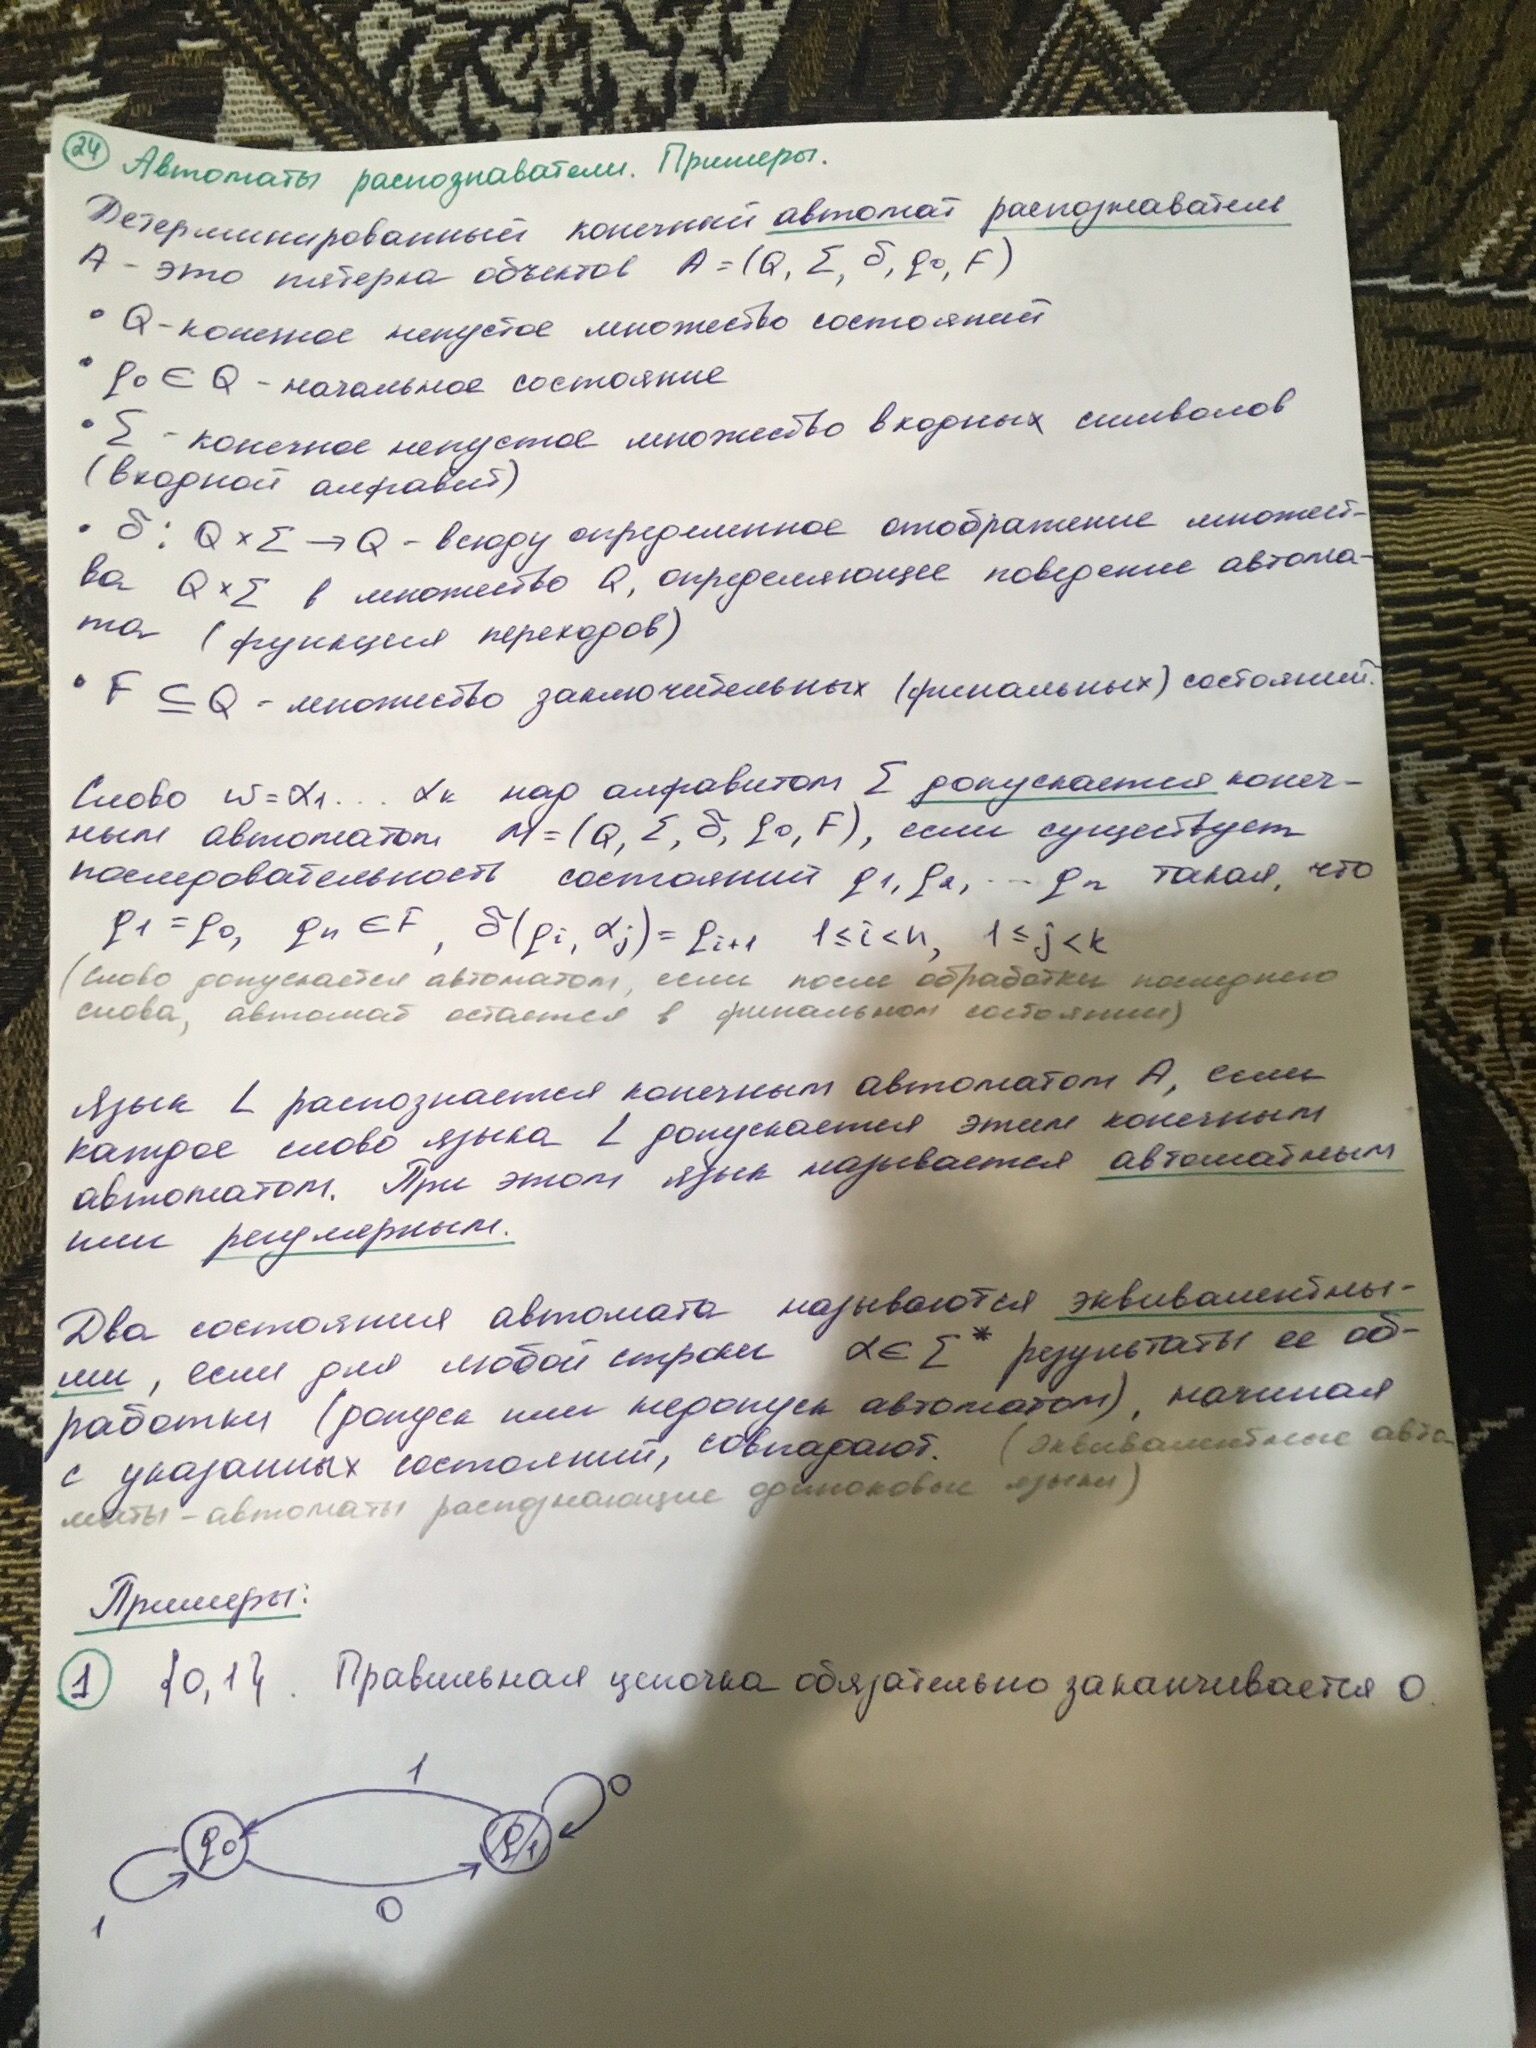 24 Автоматы распознаватели. Примеры.
Детерминированный конечный автомат распознаватель
A - это пятерка объектов A = (Q, Σ, δ, q0, F)
• Q - конечное непустое множество состояний
• q0 ∈ Q - начальное состояние
• Σ - конечное непустое множество входных символов
(входной алфавит)
• δ: Q × Σ → Q - всюду определенное отображение множест-
ва Q × Σ в множество Q, определяющее поведение автома-
та (функция переходов)
• F ⊆ Q - множество заключительных (финальных) состояний.
Слово w = α1 ... αk над алфавитом Σ допускается конеч-
ным автоматом M = (Q, Σ, δ, q0, F), если существует
последовательность состояний q1, q2, ... qn такая, что
q1 = q0, qn ∈ F, δ(qi, αj) = qi+1 1 ≤ i < n, 1 ≤ j < k
(слово допускается автоматом, если после обработки последнего
слова, автомат остается в финальном состоянии)
Язык L распознается конечным автоматом A, если
каждое слово языка L допускается этим конечным
автоматом. При этом язык называется автоматным
или регулярным.
Два состояния автомата называются эквивалентны-
ми, если для любой строки α ∈ Σ* результаты ее об-
работки (допуск или недопуск автоматом), начиная
с указанных состояний, совпадают. (эквивалентные авто
маты - автоматы распознающие одинаковые языки)
Примеры:
1 {0, 1}. Правильная цепочка обязательно заканчивается 0.
1
0
q0 q1
1
0